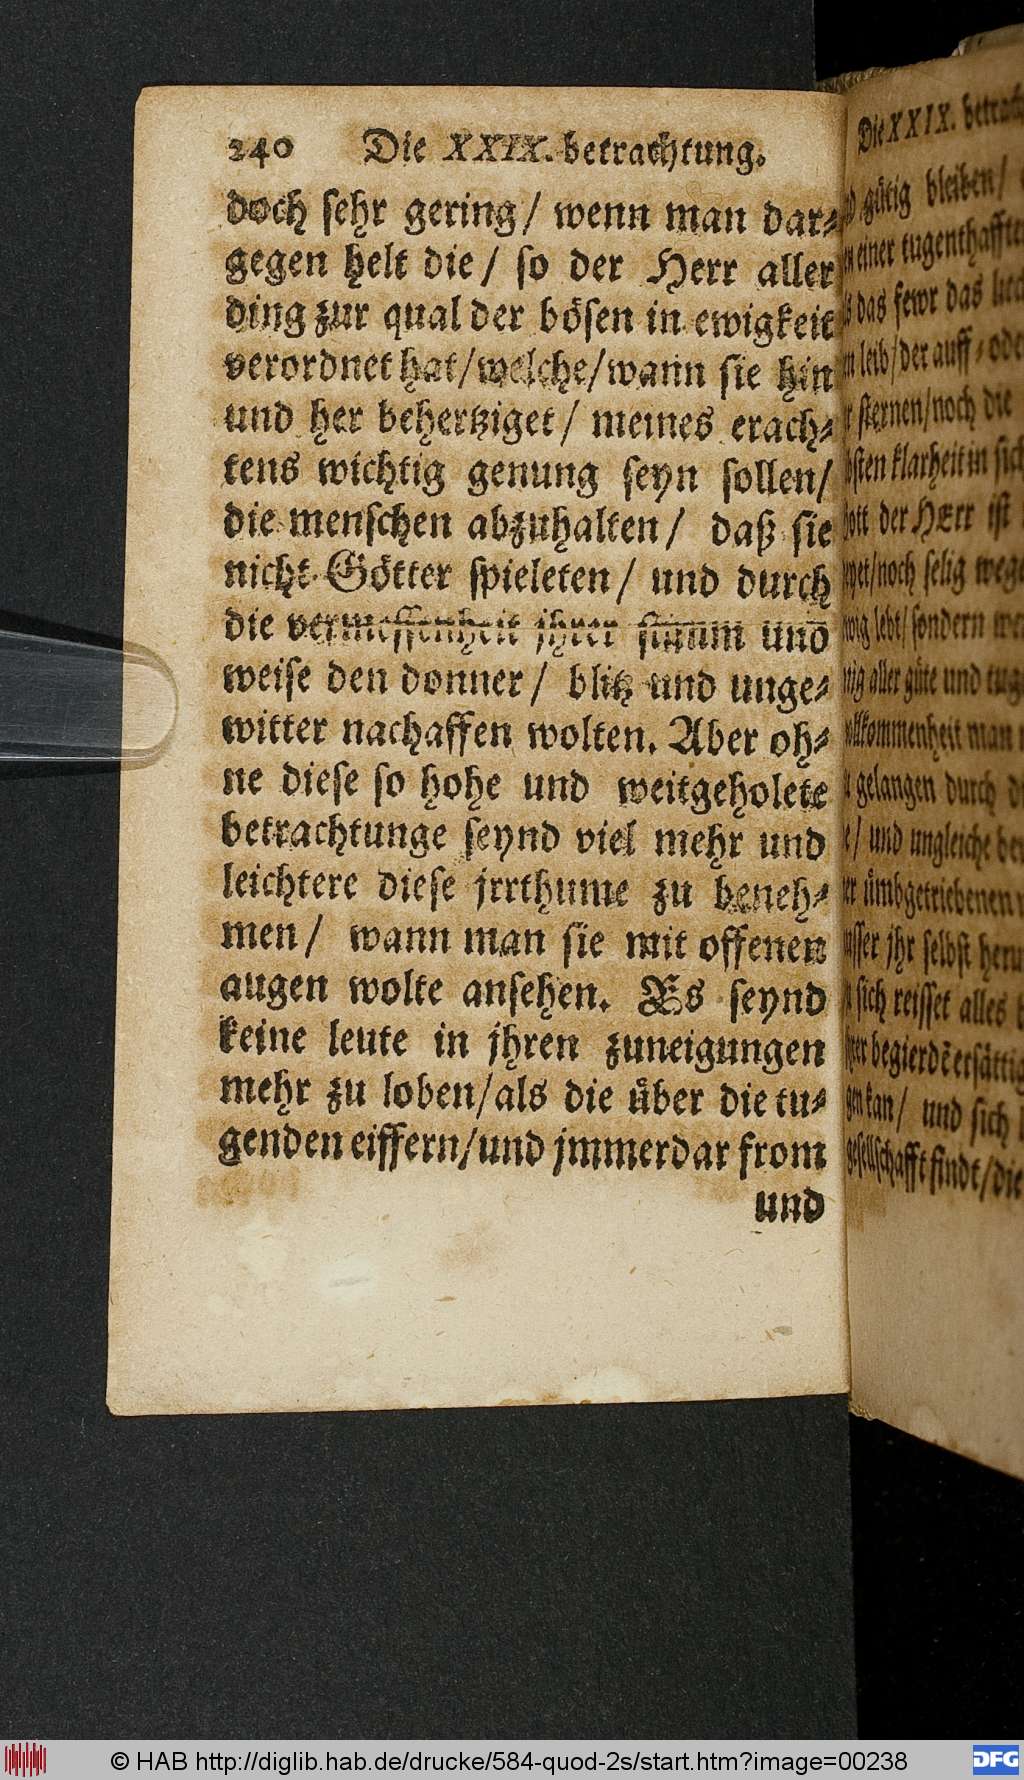 240 Die XXIX. betrachtung.
doch sehr gering/ wenn man dar-
gegen helt die/ so der Herr aller
ding zur qual der bösen in ewigkeit
verordnet hat/welche/wann sie hin
und her behertziget/ meines erach-
tens wichtig genung seyn sollen/
die menschen abzuhalten/ daß sie
nicht Götter spieleten/ und durch
die vermessenheit jhrer stimm und
weise den donner/ blitz und unge-
witter nachaffen wolten. Aber oh-
ne diese so hohe und weitgeholete
betrachtunge seynd viel mehr und
leichtere diese jrrthume zu beneh-
men/ wann man sie mit offenen
augen wolte ansehen. Es seynd
keine leute in jhren zuneigungen
mehr zu loben/als die über die tu-
genden eiffern/und jmmerdar from
und
Die XXIX.
gütig bleiben/
einer
das fewr das
leib/der auff- ode
sternen/noch die
klarheit in sich
der HErr ist
noch selig wege
lebt/sondern
aller güte und
man
gelangen durch
und ungleiche
ümbgetriebenen
jhr selbst
sich reisset alles
kan/ und sich
findt/die
© HAB http://diglib.hab.de/drucke/584-quod-2s/start.htm?image=00238
DFG